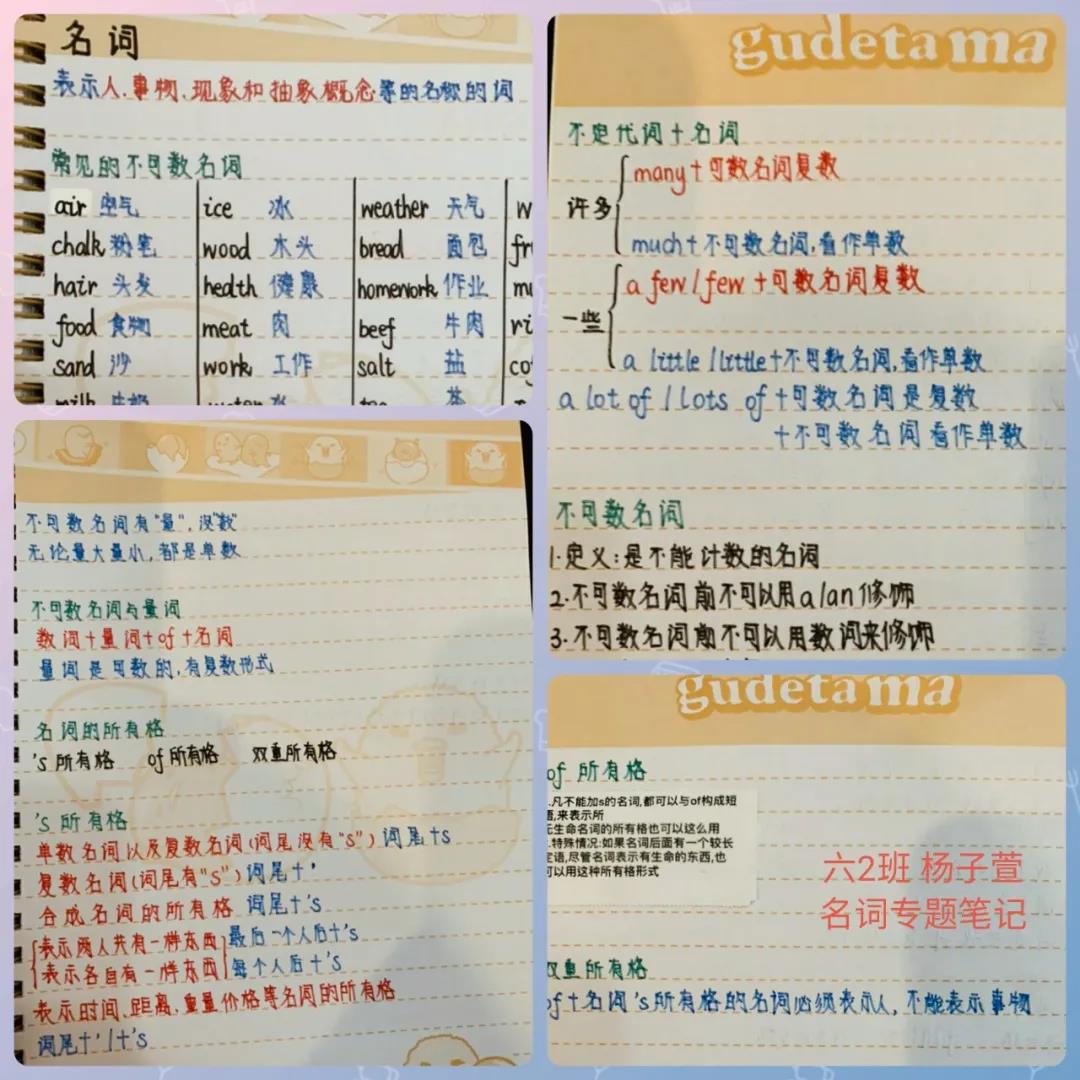 名词
表示人、事物、现象和抽象概念等的名称的词
常见的不可数名词
air 空气 ice 冰 weather 天气
chalk 粉笔 wood 木头 bread 面包
hair 头发 health 健康 homework 作业
food 食物 meat 肉 beef 牛肉
sand 沙 work 工作 salt 盐
milk 牛奶 water 水 tea 茶
gudetama
不定代词+名词
many+可数名词复数
许多
much+不可数名词,看作单数
a few/few +可数名词复数
一些
a little/little+不可数名词,看作单数
a lot of / lots of +可数名词是复数
+不可数名词看作单数
不可数名词
1.定义:是不能计数的名词
2.不可数名词前不可以用a/an修饰
3.不可数名词前不可以用数词来修饰
不可数名词有"量",没"数"
无论量大量小,都是单数
不可数名词与量词
数词+量词+of+名词
量词是可数的,有复数形式
名词的所有格
's所有格 of所有格 双重所有格
's所有格
单数名词以及复数名词(词尾没有"s")词尾+s
复数名词(词尾有"s")词尾+'
合成名词的所有格 词尾+'s
表示两人共有一样东西 最后一个人后+'s
表示各自有一样东西 每个人后+'s
表示时间、距离,重量价格等名词的所有格
词尾+'/+'s
gudetama
of 所有格
.凡不能加s的名词,都可以与of构成短
语,来表示所
无生命名词的所有格也可以这么用
.特殊情况:如果名词后面有一个较长
定语,尽管名词表示有生命的东西,也
可以用这种所有格形式
六2班 杨子萱
名词专题笔记
双重所有格
of+名词's所有格的名词必须表示人,不能表示事物